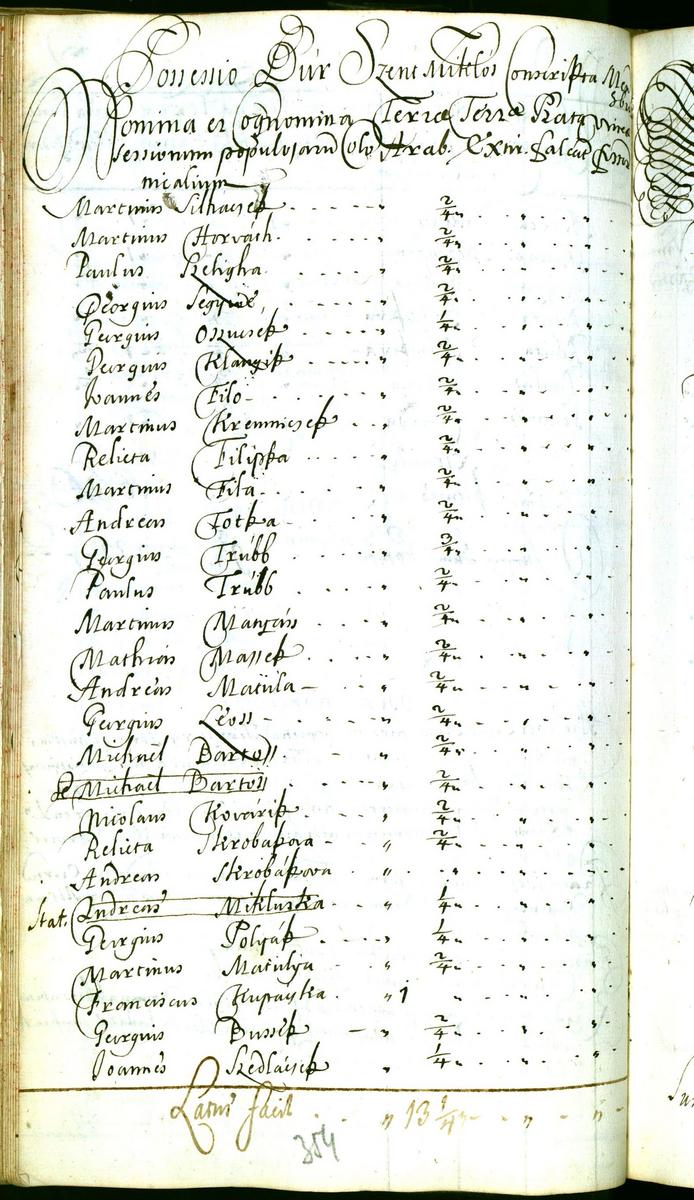 Possessio Dúr Szent Miklós Conscripta
Nomina et Cognomina Terræ Terræ Prata
sessionum populosarum Colo Arab. Extir. falcat
nicalium
Martinus Silhacsek " 2/4 " " "
Martinus Horváth " 2/4 " " "
Paulus Szeligha " 2/4 " " "
Georgius " 2/4 " " "
Georgius Oszucsek " 1/4 " " "
Georgius " 2/4 " " "
Joannes Filo " 2/4 " " "
Martinus Kremnicsek " 2/4 " " "
Relicta Filipka " 2/4 " " "
Martinus Fila " 2/4 " " "
Andreas Fotka " 2/4 " " "
Georgius Trúbb " 3/4 " " "
Paulus Trúbb " 2/4 " " "
Martinus Mangáss " 2/4 " " "
Mathias Massek " 2/4 " " "
Andreas Matula " 2/4 " " "
Georgius Leoss " 2/4 " " "
Michael Bartoss " 2/4 " " "
Michael Bartoss " 2/4 " " "
Nicolaus Kovárik " 2/4 " " "
Relicta Skrobakova " 2/4 " " "
Andreas Skrobákova " " " "
Stat. Andreas Mikluska " 1/4 " " "
Georgius Polyák " 1/4 " " "
Martinus Matulya " 2/4 " " "
Franciscus Kupaytka " 1 " " "
Georgius Bussek " 2/4 " " "
Joannes Szedlacsek " 1/4 " " "
Latus facit " 13 1/4 " "
354